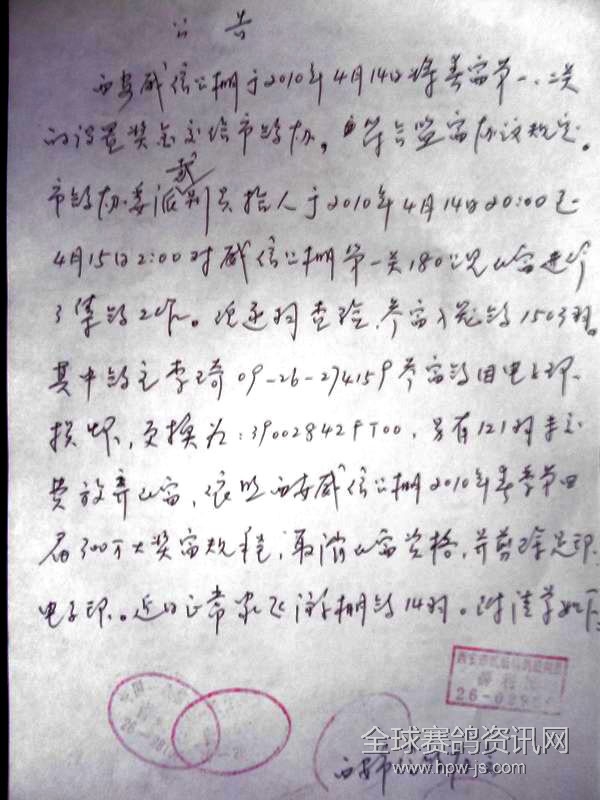 公告
西安威信公棚于2010年4月14日将春赛第一、二关
的设置奖金交给市鸽协，符合监赛协议规定。
市鸽协委派裁判员拾人于2010年4月14日20:00至
4月15日2:00对威信公棚第一关180公里比赛进行
了集鸽工作。逐羽查验，参赛入笼鸽1503羽。
其中鸽主李琦09-26-274159参赛鸽因电子环
损坏，更换为：390028429T00，另有121羽未交
费放弃比赛，依照西安威信公棚2010年春季第四
届300万大奖赛规程，取消比赛资格，并剪除足环、
电子环。近日正常家飞游棚鸽14羽。附清单如下：
26-02
全球赛鸽资讯网
www.hpw-js.com